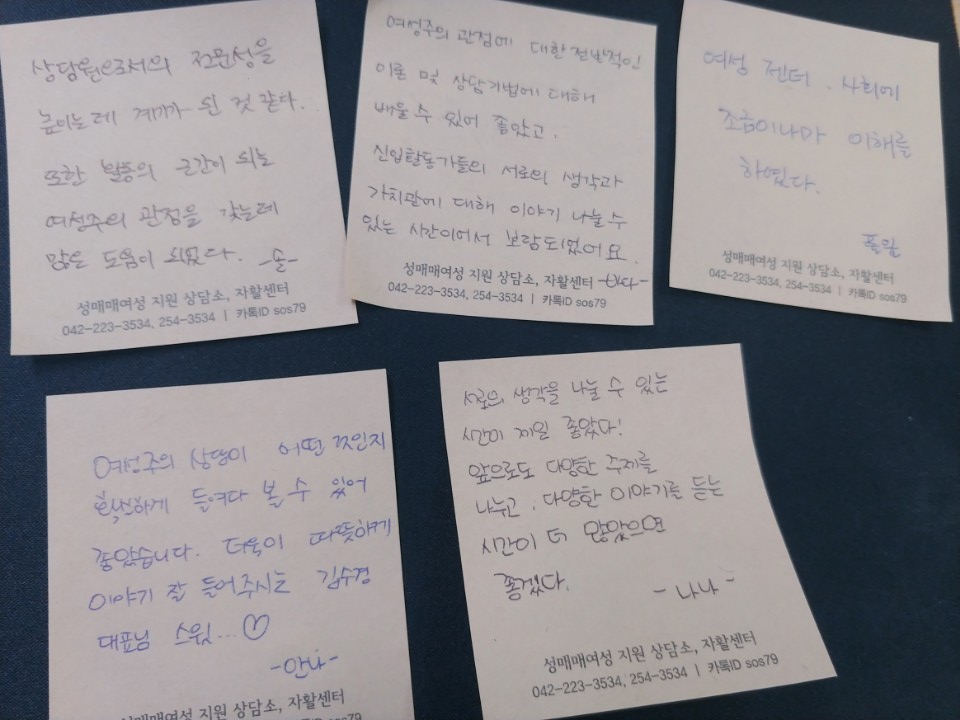 상담원으로서의 전문성을
높이는데 계기가 된 것 같다.
또한 활동의 근간이 되는
여성주의 관점을 갖는데
많은 도움이 되었다. -솔-
성매매여성 지원 상담소, 자활센터
042-223-3534, 254-3534 | 카톡ID sos79
여성주의 관점에 대한 전반적인
이론 및 상담기법에 대해
배울 수 있어 좋았고.
신입활동가들의 서로의 생각과
가치관에 대해 이야기 나눌 수
있는 시간이어서 보람되었어요.
성매매여성 지원 상담소, 자활센터
042-223-3534, 254-3534 | 카톡ID sos79
여성 젠더, 사회에
조금이나마 이해를
하였다.
성매매여성 지원 상담소, 자활센터
042-223-3534, 254-3534 | 카톡ID sos79
여성주의 상담이 어떤 것인지
확실하게 들여다 볼 수 있어
좋았습니다. 더욱이 따뜻하게
이야기 잘 들어주시는 김수경
대표님 스윗...♡
-안나-
성매매여성 지원 상담소, 자활센터
042-223-3534, 254-3534 | 카톡ID sos79
서로의 생각을 나눌 수 있는
시간이 제일 좋았다!
앞으로도 다양한 주제를
나누고, 다양한 이야기를 듣는
시간이 더 많았으면
좋겠다. - 나나 -
성매매여성 지원 상담소, 자활센터
042-223-3534, 254-3534 | 카톡ID sos79